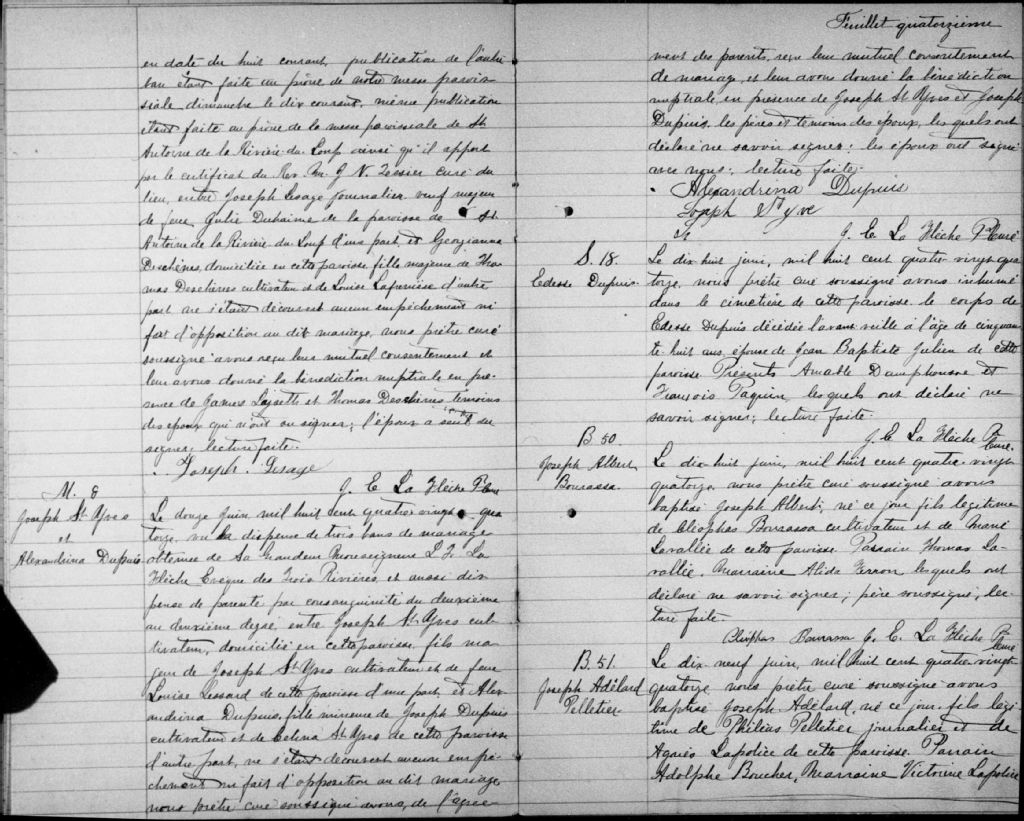 en date du huit courant, publication de l'autre
ban étant faite au prône de notre messe parois
siale dimanche le dix courant, même publication
étant faite au prône de la messe paroissiale de St
Antoine de la Rivière du Loup ainsi qu'il appert
par le certificat du Rev. Mr. J. N. Tessier curé du
lieu, entre Joseph Lesage journalier veuf majeur
de feue Julie Duhaime de la paroisse de St
Antoine de la Rivière du Loup d'une part, et Georgianna
Deschènes, domiciliée en cette paroisse fille majeure de Tho
mas Deschènes cultivateur et de Louise Lafrenière d'autre
part ne s'étant découvert aucun empêchement ni
fait d'opposition au dit mariage, nous prêtre curé
soussigné avons reçu leur mutuel consentement et
leur avons donné la bénédiction nuptiale en pré
sence de James et Thomas Deschènes témoins
des epoux qui n'ont su signer; l'époux a seul su
signer, lecture faite
Joseph Lesage
J. E. La Flèche Ptre Curé
M. 8
Joseph St Yves
et
Alexandrina Dupuis
Le douze juin mil huit cent quatre vingt qua
torze, vu la dispense de trois bans de mariage
obtenue de Sa Grandeur Monseigneur L. F. La
Flèche Evêque des Trois Rivières, et aussi dis
pense de parenté par consanguinité du deuxième
au deuxième degré, entre Joseph St Yves cul
tivateur, domicilié en cette paroisse, fils ma
jeur de Joseph St Yves cultivateur et de feue
Louise Lessard de cette paroisse d'une part, et Alex
andrina Dupuis, fille mineure de Joseph Dupuis
cultivateur et de Celina St Yves de cette paroisse
d'autre part, ne s'étant découvert aucun em pê
chement ni fait d'opposition au dit mariage,
nous prêtre curé soussigné avons, de l'agré
Feuillet quatorzième
ment des parents, reçu leur mutuel consentement
de mariage, et leur avons donné la bénédiction
nuptiale, en présence de Joseph St Yves et Joseph
Dupuis, les pères et temoins des epoux, les quels ont
déclaré ne savoir signer; les époux ont signé
avec nous; lecture faite.
Alexandrina Dupuis
Joseph St Yve
J. E. La Flèche Ptre Curé
S. 18.
Edesse Dupuis
Le dix huit juin, mil huit cent quatre vingt qua
torze, nous prêtre curé soussigné avons inhumé
dans le cimetière de cette paroisse, le corps de
Edesse Dupuis décédée l'avant veille à l'âge de cinquan
te huit ans, épouse de Jean Baptiste Julien de cette
paroisse Présents Amable Damphousse et
François Paquin, les quels ont déclaré ne
savoir signer; lecture faite.
J. E. La Flèche Ptre Curé.
B 50.
Joseph Albert
Bourassa
Le dix-huit juin, mil huit cent quatre vingt
quatorze, nous prêtre curé soussigné avons
baptisé Joseph Albert, né ce jour fils legitime
de Cléophas Bourassa cultivateur et de Marie
Lavallée de cette paroisse. Parrain Thomas La
vallée, Marraine Alida Ferron lesquels ont
déclaré ne savoir signer; père soussigné, lec
ture faite.
Cléophas Bourassa J. E. La Flèche Ptre Curé
B. 51.
Joseph Adélard
Pelletier
Le dix-neuf juin, mil huit cent quatre vingt
quatorze, nous prêtre curé soussigné avons
baptisé Joseph Adélard, né ce jour fils légi
time de Philéas Pelletier journalier et de
Agnès Lapolice de cette paroisse. Parrain
Adolphe Boucher, Marraine Victorine Lapolice